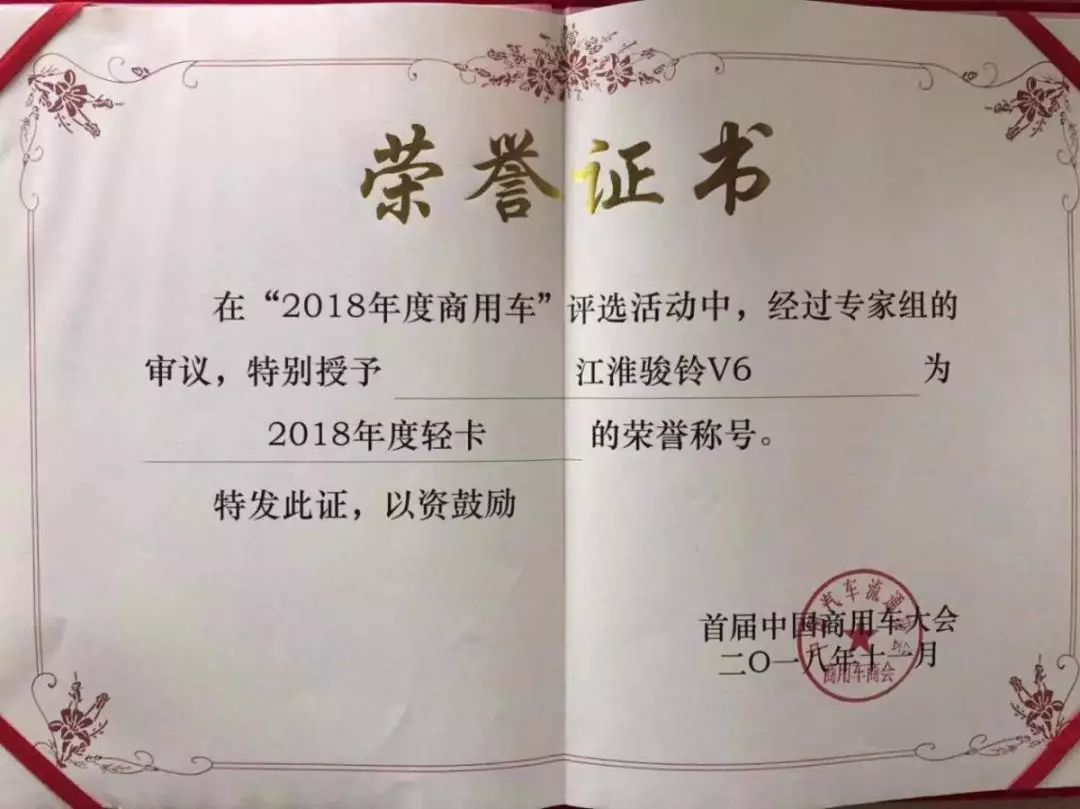 荣誉证书
在“2018年度商用车”评选活动中，经过专家组的
审议，特别授予 江淮骏铃V6 为
2018年度轻卡 的荣誉称号。
特发此证，以资鼓励
首届中国商用车大会
二〇一八年十一月
汽车流通
商用车商会